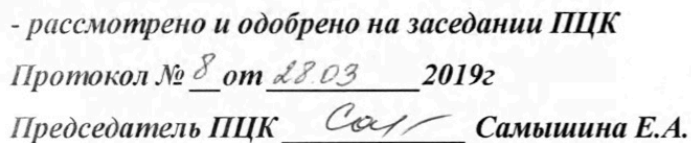 - рассмотрено и одобрено на заседании ПЦК
Протокол № 8 от 28.03 2019г
Председатель ПЦК Самышина Е.А.